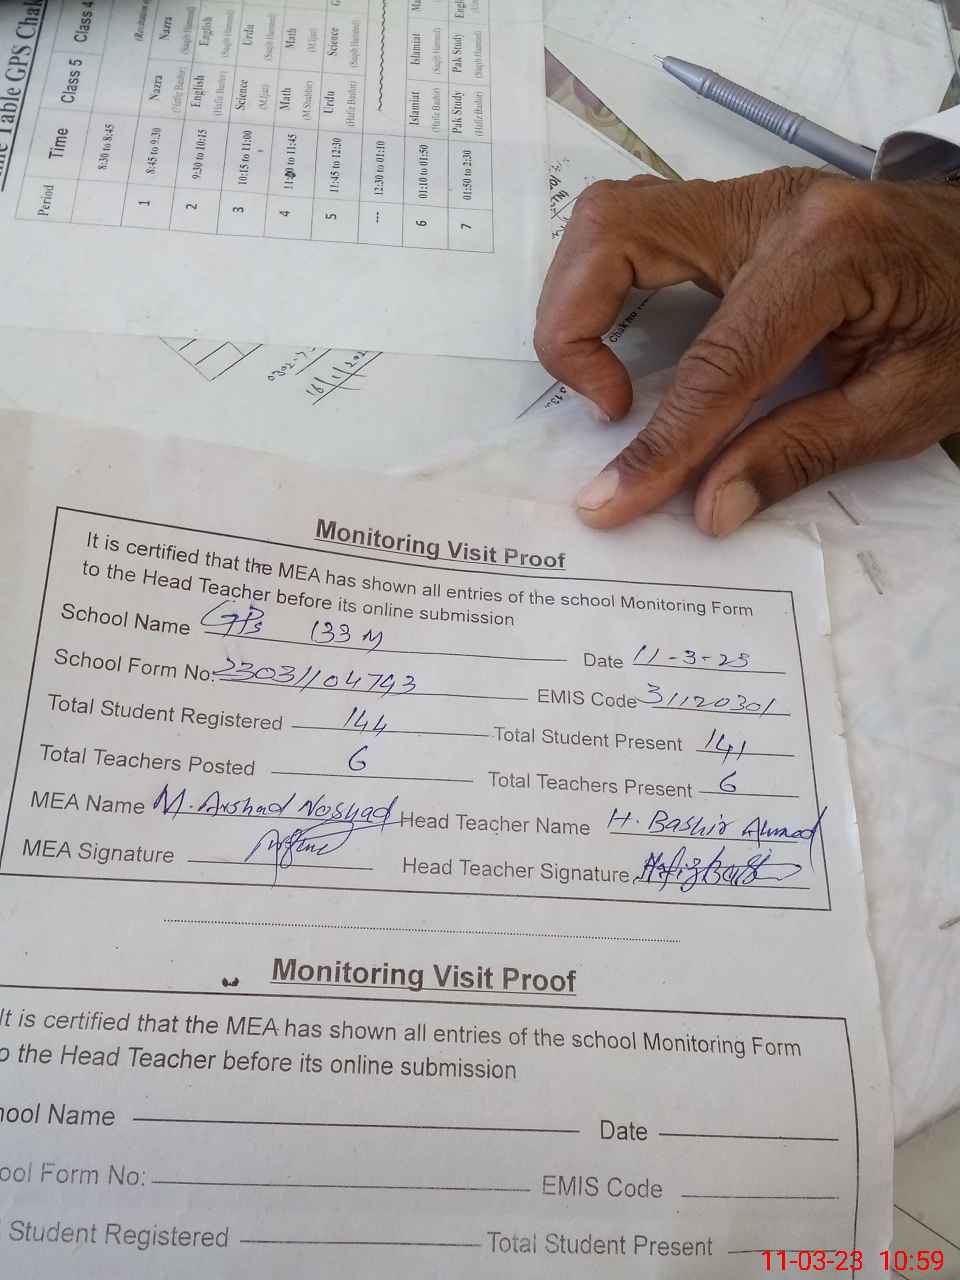 me Table GPS Chak
Period Time Class 5 Class 4
8:30 to 8:45
1 8:45 to 9:30 Nazra (Hafiz Bashir) Nazra (Saqib Hameed)
2 9:30 to 10:15 English (Hafiz Bashir) English (Saqib Hameed)
3 10:15 to 11:00 Science (M.Ijaz) Urdu (Saqib Hameed)
4 to 11:45 Math Math (M.Ijaz)
5 11:45 to 12:30 Urdu (Hafiz Bashir) Science (Saqib Hameed)
--- 12:30 to 01:10
6 01:10 to 01:50 Islamiat (Hafiz Bashir) Islamiat (Saqib Hameed) Ma
7 01:50 to 2:30 Pak Study (Hafiz Bashir) Pak Study (Saqib Hameed) Engl
chak no
0302-7
16/1/202
Monitoring Visit Proof
It is certified that the MEA has shown all entries of the school Monitoring Form
to the Head Teacher before its online submission
School Name GPS 133 M Date 11-3-23
School Form No: 23031104793 EMIS Code 31120301
Total Student Registered 144 Total Student Present 141
Total Teachers Posted 6 Total Teachers Present 6
MEA Name M. Arshad Noshad Head Teacher Name H. Bashir Ahmad
MEA Signature Head Teacher Signature
Monitoring Visit Proof
It is certified that the MEA has shown all entries of the school Monitoring Form
o the Head Teacher before its online submission
hool Name Date
ool Form No: EMIS Code
Student Registered Total Student Present
11-03-23 10:59